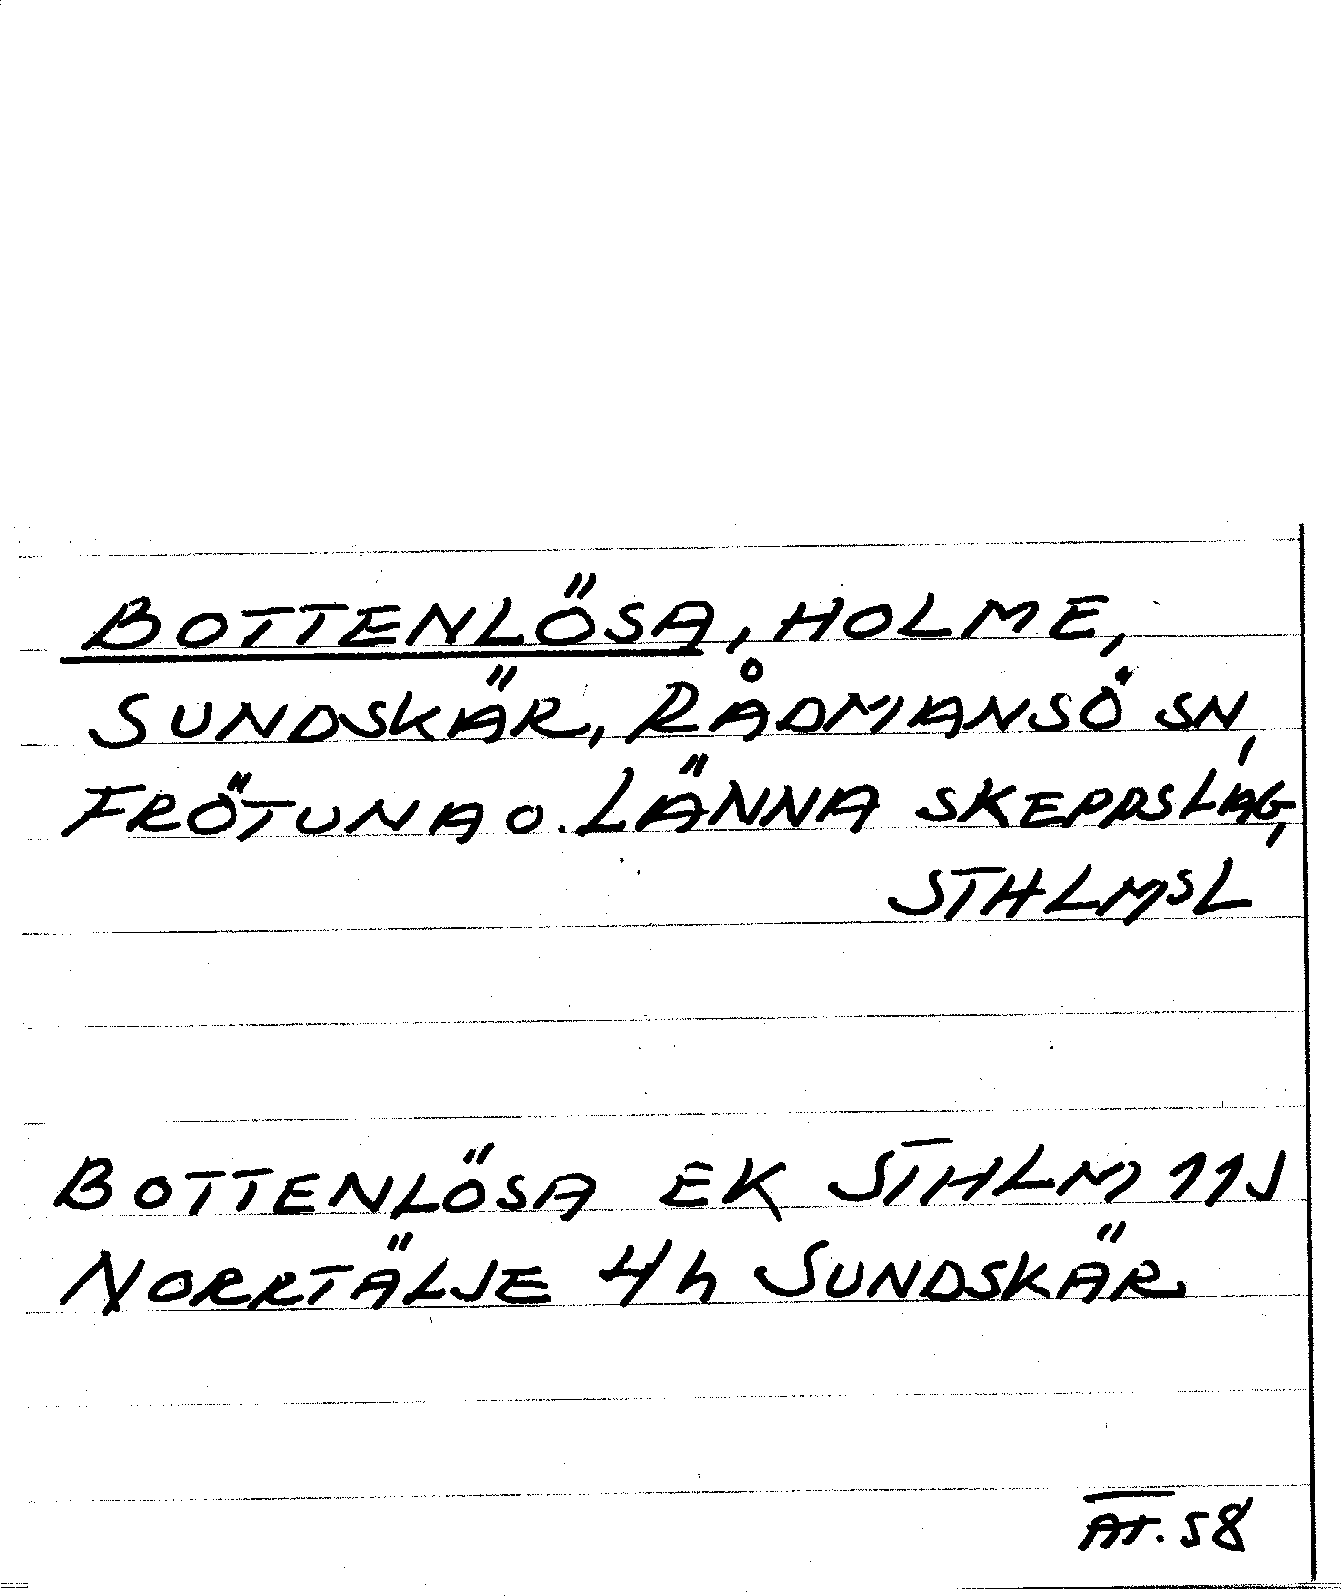 BOTTENLÖSA, HOLME,
SUNDSKÄR, RÅDMANSÖ SN,
FRÖTUNA O. LÄNNA SKEPPSLAG,
STHLMSL
BOTTENLÖSA EK STHLM 11J
NORRTÄLJE 4h SUNDSKÄR
AT. 58